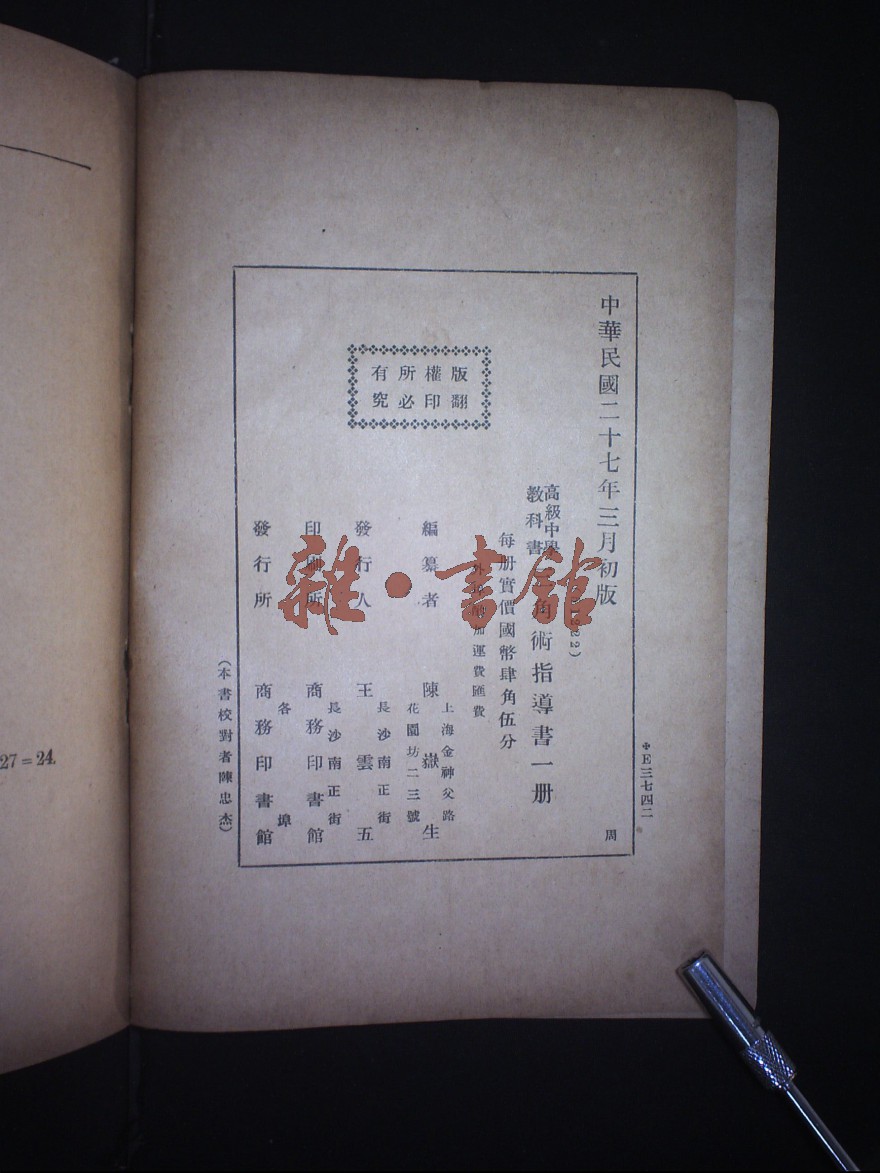 中華民國二十七年三月初版
高級中學
教科書 角術指導書一册
22)
每册實價國幣肆角伍分
加運費匯費
版權所有
翻印必究
編纂者 陳嶽生
上海金神父路
花園坊二三號
發行人 王雲五
長沙南正街
印刷所 商務印書館
長沙南正街
發行所 商務印書館
各埠
(本書校對者陳忠杰)
E三七四二
周
雜·書館
27 = 24.